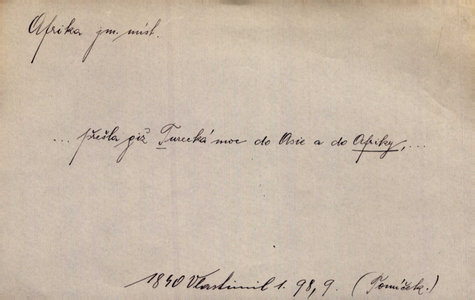 Afrika jm. míst.
... přešla giž Turecká moc do Asie a do Afriky, ...
1840 Vlastimil 1. 98, 9. (Tomíček.)